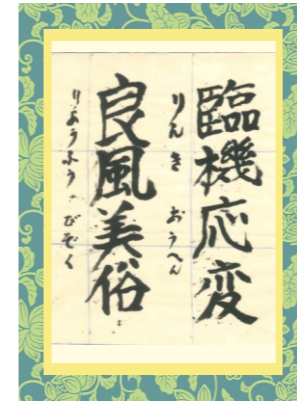 臨機応変
りんきおうへん
良風美俗
りょうふうびぞく